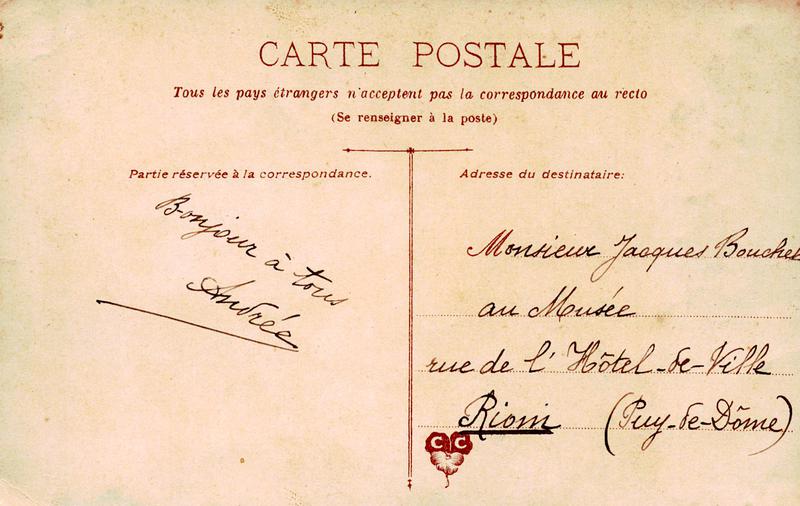 CARTE POSTALE
Tous les pays étrangers n'acceptent pas la correspondance au recto
(Se renseigner à la poste)
Partie réservée à la correspondance.
Adresse du destinataire:
Bonjour à tous
Andrée
Monsieur Jacques Bouchet
au Musée
rue de l'Hôtel-de-Ville
Riom (Puy-de-Dôme)
C C
S